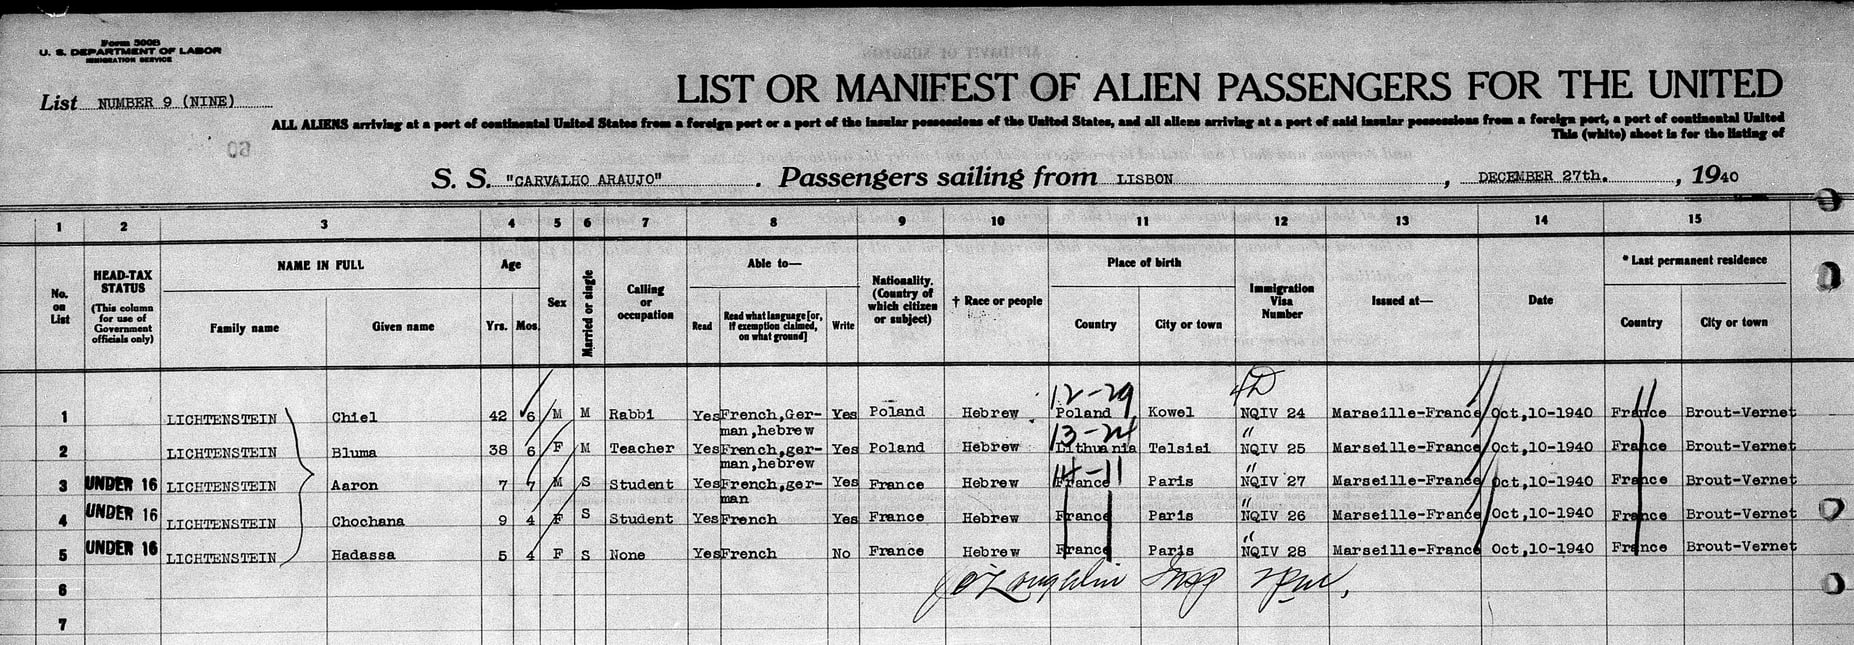 Form 500B
U. S. DEPARTMENT OF LABOR
IMMIGRATION SERVICE
List NUMBER 9 (NINE)
LIST OR MANIFEST OF ALIEN PASSENGERS FOR THE UNITED
ALL ALIENS arriving at a port of continental United States from a foreign port or a port of the insular possessions of the United States, and all aliens arriving at a port of said insular possessions from a foreign port, a port of continental United
This (white) sheet is for the listing of
60
S. S. "CARVALHO ARAUJO" . Passengers sailing from LISBON , DECEMBER 27th. , 1940
1 2 3 4 5 6 7 8 9 10 11 12 13 14 15
No. on List
HEAD-TAX STATUS (This column for use of Government officials only)
NAME IN FULL
Family name Given name
Age
Yrs. Mos.
Sex
Married or single
Calling or occupation
Able to—
Read Read what language [or, if exemption claimed, on what ground] Write
Nationality. (Country of which citizen or subject)
† Race or people
Place of birth
Country City or town
Immigration Visa Number
Issued at—
Date
* Last permanent residence
Country City or town
12-29
1 LICHTENSTEIN Chiel 42 6 M M Rabbi Yes French,Ger- Yes Poland Hebrew Poland Kowel NQIV 24 Marseille-France Oct,10-1940 France Brout-Vernet
man,hebrew
2 LICHTENSTEIN Bluma 38 6 F M Teacher Yes French,ger- Yes Poland Hebrew Lithuania Telsiai " NQIV 25 Marseille-France Oct,10-1940 France Brout-Vernet
man,hebrew
14-11
3 UNDER 16 LICHTENSTEIN Aaron 7 7 M S Student Yes French,ger- Yes France Hebrew France Paris " NQIV 27 Marseille-France Oct,10-1940 France Brout-Vernet
man
4 UNDER 16 LICHTENSTEIN Chochana 9 4 F S Student Yes French Yes France Hebrew France Paris " NQIV 26 Marseille-France Oct,10-1940 France Brout-Vernet
5 UNDER 16 LICHTENSTEIN Hadassa 5 4 F S None Yes French No France Hebrew France Paris " NQIV 28 Marseille-France Oct,10-1940 France Brout-Vernet
6 O'Loughlin Insp
7